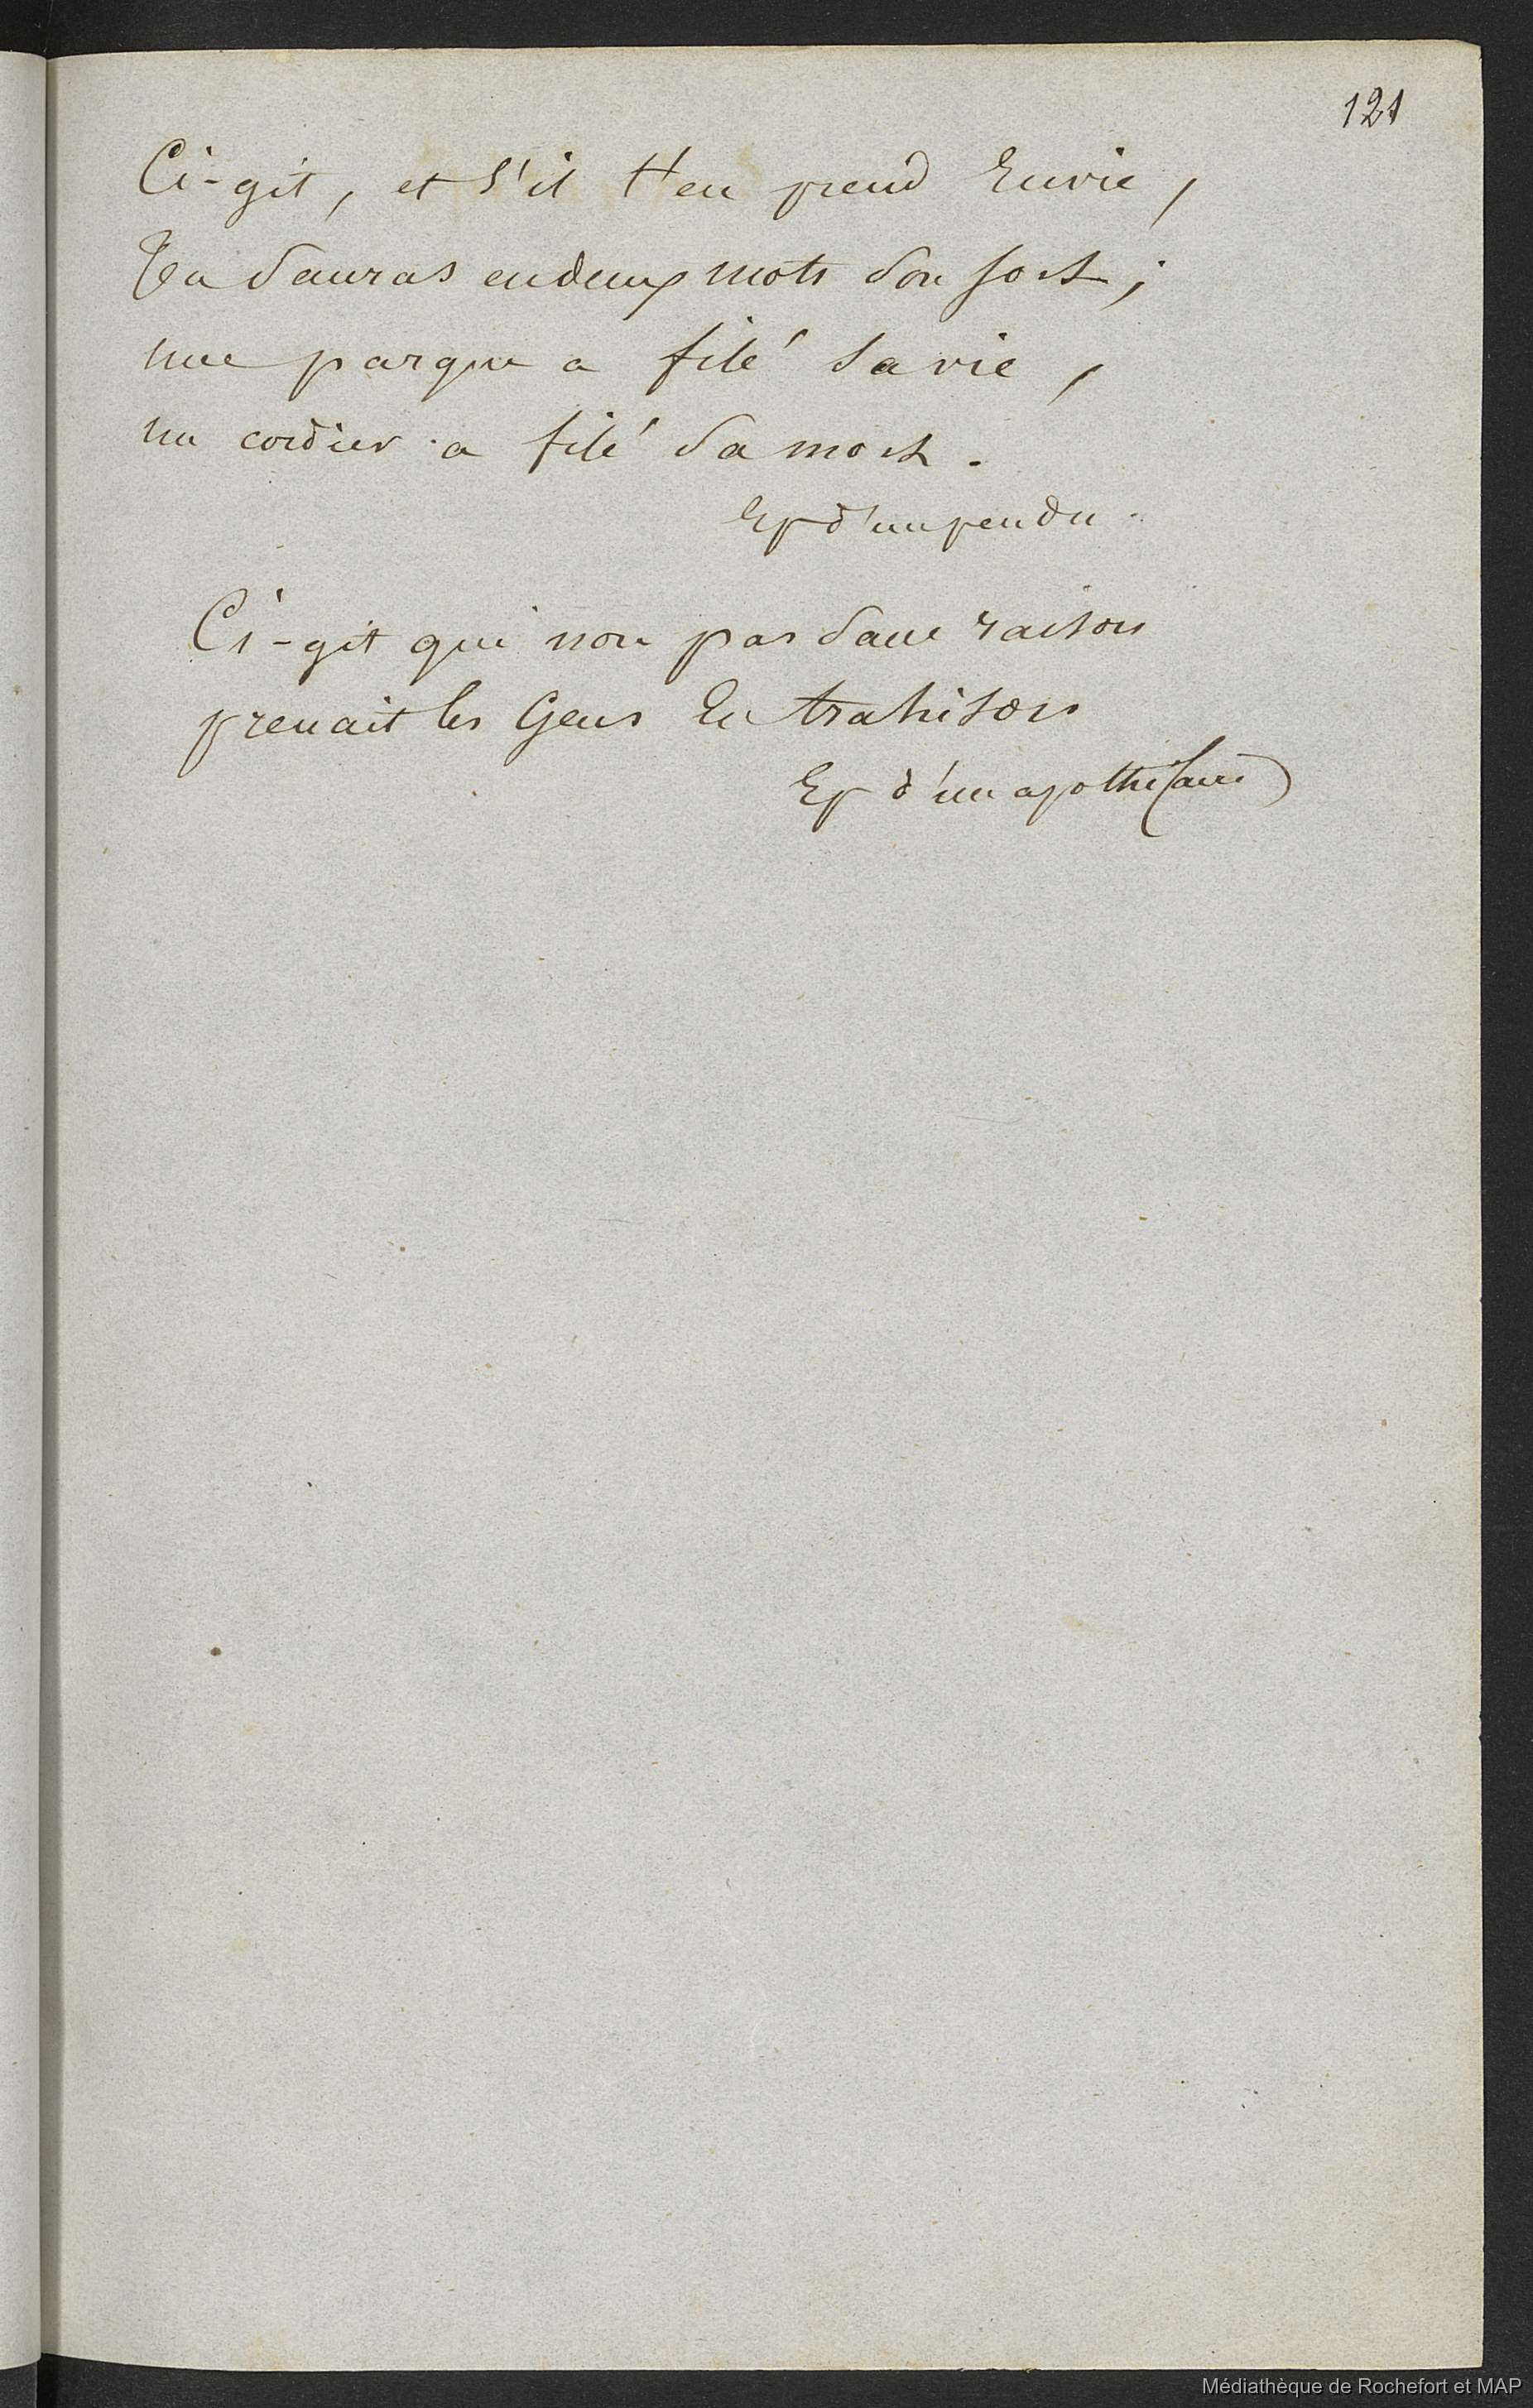 121
Ci-git, et s'il t'en prend Envie,
Tu sauras en deux mots son sort ;
une parque a filé sa vie,
un cordier a filé sa mort.
Ep d'un pendu.
Ci-git qui non pas sans raison
prenait les Gens En trahison
Ep d'un apothicaire
Médiathèque de Rochefort et MAP